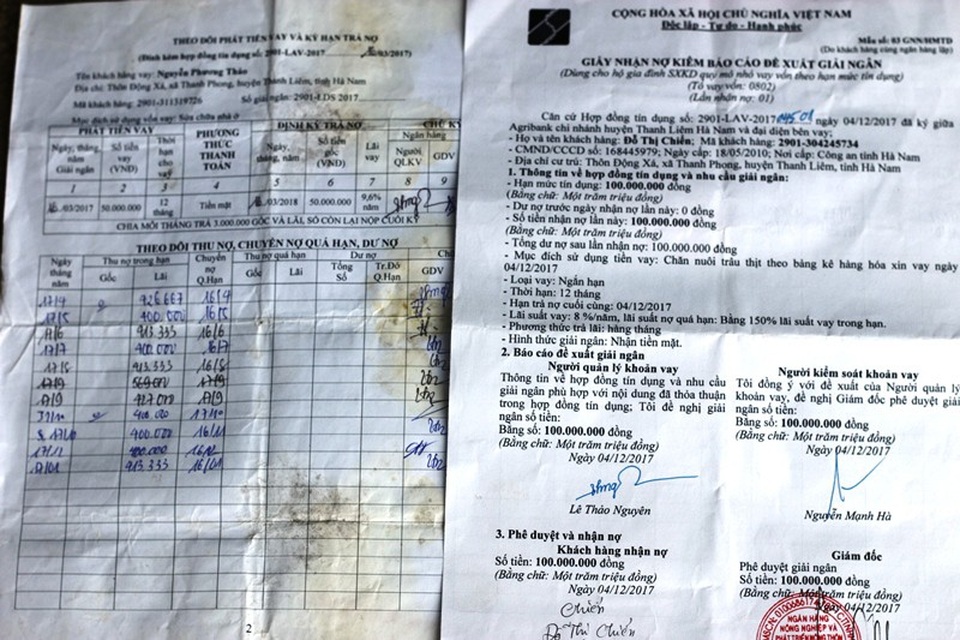 THEO DÕI PHÁT TIỀN VAY VÀ KỲ HẠN TRẢ NỢ
(Đính kèm hợp đồng tín dụng số: 2901-LAV-2017 /03/2017)
Tên khách hàng vay: Nguyễn Phương Thảo
Địa chỉ: Thôn Động Xá, xã Thanh Phong, Thanh Liêm, tỉnh Hà Nam
Mã khách hàng: 2901-311319726 Số giải ngân: 2901-LDS 2017
Mục đích sử dụng vốn vay: Sửa chữa nhà ở
PHÁT TIỀN VAY PHƯƠNG THỨC THANH TOÁN ĐỊNH KỲ TRẢ NỢ CHỮ KÝ
Ngày, tháng, năm Giải ngân Số tiền vay (VNĐ) Thời hạn cho vay Ngày, tháng, năm Số tiền gốc (VNĐ) Lãi vay Ngân hàng
Người QLKV GDV
1 2 3 4 5 6 7 8 9
/03/2017 50.000.000 12 tháng Tiền mặt /03/2018 50.000.000 9,6% năm
CHIA MỖI THÁNG TRẢ 3.000.000 GỐC VÀ LÃI, SỐ CÒN LẠI NỘP CUỐI KỲ
THEO DÕI THU NỢ, CHUYỂN NỢ QUÁ HẠN, DƯ NỢ
Ngày tháng năm Thu nợ trong hạn Chuyển nợ Q.Hạn Thu nợ quá hạn Dư nợ
Gốc Lãi Gốc Lãi Tổng Số Tr.Đó Q.Hạn GDV
17/4 926.667 16/4
17/5 400.000 16/5
17/6 913.333 16/6
17/7 400.000 16/7
913.333
17/9 569.000 17/9
17/9 927.000 17/9
400.000 17/10
400.000 16/11
17/12 400.000 16/12
17/01 913.333 16/01
2
CỘNG HÒA XÃ HỘI CHỦ NGHĨA VIỆT NAM
Độc lập - Tự do - Hạnh phúc
Mẫu số: 03 GNN/HMTD
(Do khách hàng cùng ngân hàng lập)
GIẤY NHẬN NỢ KIÊM BÁO CÁO ĐỀ XUẤT GIẢI NGÂN
(Dùng cho hộ gia đình SXKD quy mô nhỏ vay vốn theo hạn mức tín dụng)
(Tổ vay vốn: 0802)
(Lần nhận nợ: 01)
Căn cứ Hợp đồng tín dụng số: 2901-LAV-2017 ngày 04/12/2017 đã ký giữa
Agribank chi nhánh huyện Thanh Liêm Hà Nam và đại diện bên vay;
- Họ và tên khách hàng: Đỗ Thị Chiến; Mã khách hàng: 2901-304245734
- CMND/CCCD số: 168445979; Ngày cấp: 18/05/2010; Nơi cấp: Công an tỉnh Hà Nam
- Địa chỉ cư trú: Thôn Động Xá, xã Thanh Phong, huyện Thanh Liêm, tỉnh Hà Nam
1. Thông tin về hợp đồng tín dụng và nhu cầu giải ngân:
- Hạn mức tín dụng: 100.000.000 đồng
(Bằng chữ: Một trăm triệu đồng)
- Dư nợ trước ngày nhận nợ lần này: 0 đồng
- Số tiền nhận nợ lần này: 100.000.000 đồng
(Bằng chữ: Một trăm triệu đồng)
- Tổng dư nợ sau lần nhận nợ: 100.000.000 đồng
- Mục đích sử dụng tiền vay: Chăn nuôi trâu thịt theo bảng kê hàng hóa xin vay ngày
04/12/2017
- Loại vay: Ngắn hạn
- Thời hạn: 12 tháng
- Hạn trả nợ cuối cùng: 04/12/2017
- Lãi suất vay: 8 %/năm, lãi suất nợ quá hạn: Bằng 150% lãi suất vay trong hạn.
- Phương thức trả lãi: hàng tháng
- Hình thức giải ngân: Nhận tiền mặt.
2. Báo cáo đề xuất giải ngân
Người quản lý khoản vay
Thông tin về hợp đồng tín dụng và nhu cầu
giải ngân phù hợp với nội dung đã thỏa thuận
trong hợp đồng tín dụng; Tôi đề nghị giải
ngân số tiền:
Bằng số: 100.000.000 đồng
(Bằng chữ: Một trăm triệu đồng)
Ngày 04/12/2017
Lê Thảo Nguyên
Người kiểm soát khoản vay
Tôi đồng ý với đề xuất của Người quản lý
khoản vay, đề nghị Giám đốc phê duyệt giải
ngân số tiền:
Bằng số: 100.000.000 đồng
(Bằng chữ: Một trăm triệu đồng)
Ngày 04/12/2017
Nguyễn Mạnh Hà
3. Phê duyệt và nhận nợ
Khách hàng nhận nợ
Số tiền: 100.000.000 đồng
(Bằng chữ: Một trăm triệu đồng)
Ngày 04/12/2017
Chiến
Đỗ Thị Chiến
Giám đốc
Phê duyệt giải ngân
Số tiền: 100.000.000 đồng
(Bằng chữ: Một trăm triệu đồng)
04/12/2017
NGÂN HÀNG
NÔNG NGHIỆP VÀ
PHÁT TRIỂN NÔNG THÔN